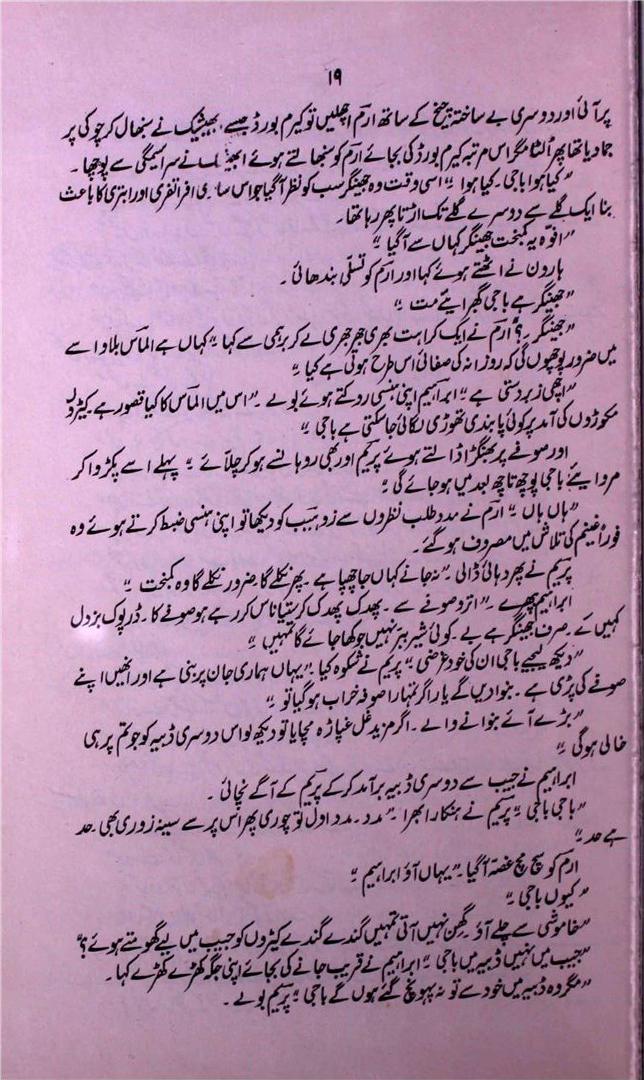 ۱۹
پر آئی اور دوسری بے ساختہ چیخ کے ساتھ ارم اچھلیں تو کیرم بورڈ جسے ابھیشیک نے سنبھال کر چوکی پر
جما دیا تھا پھر اُلٹا مگر اس مرتبہ کیرم بورڈ کی بجائے ارم کو سنبھالتے ہوئے ابھیشیک نے سراسیمگی سے پوچھا۔
”کیا ہوا باجی۔ کیا ہوا“ اسی وقت وہ جھینگر سب کو نظر آگیا جو اس ساری افراتفری اور ابتری کا باعث
بنا ایک گملے سے دوسرے گملے تک اڑتا پھر رہا تھا۔
”افوہ یہ کمبخت جھینگر کہاں سے آگیا“
ہارون نے اٹھتے ہوئے کہا اور ارم کو تسلّی بندھائی۔
”جھینگر ہے باجی گھبرایئے مت“
”جھینگر۔؟“ ارم نے ایک کراہت بھری جھرجھری لے کر برہمی سے کہا ”کہاں ہے الماس بلاو اسے
میں ضرور پوچھوں گی کہ روزانہ کی صفائی اس طرح ہوتی ہے کیا“
”اچھی زبردستی ہے“ ابراہیم اپنی ہنسی روکتے ہوئے بولے۔ ”اس میں الماس کا کیا قصور ہے کیڑوں
مکوڑوں کی آمد پر کوئی پابندی تھوڑی لگائی جاسکتی ہے باجی“
اور صوفے پر بھنگڑا ڈالتے ہوئے پریم اور بھی روہانسے ہوکر چلّائے ”پہلے اسے پکڑوا کر
مروایئے باجی پوچھ تاچھ بعد میں ہوجائے گی“
”ہاں ہاں“ ارم نے مدد طلب نظروں سے زوہیب کو دیکھا تو اپنی ہنسی ضبط کرتے ہوئے وہ
فوراً غنیم کی تلاش میں مصروف ہو گئے۔
پریم نے پھر دہائی ڈالی۔ ”نہ جانے کہاں جا چھپا ہے۔ پھر نکلے گا۔ ضرور نکلے گا وہ کمبخت“
ابراہیم بپھرے۔ ”اترو صوفے سے۔ پھدک پھدک کر ستیاناس کر رہے ہو صوفے کا۔ ڈرپوک بزدل
کہیں کے۔ صرف جھینگر ہے بے۔ کوئی شیر ببر نہیں جو کھا جائے گا تمہیں“
”دیکھ لیجیے باجی ان کی خود غرضی“ پریم نے شکوہ کیا۔ ”یہاں ہماری جان پر بنی ہے اور انھیں اپنے
صوفے کی پڑی ہے۔ بنوا دیں گے یار اگر تمہارا صوفہ خراب ہوگیا تو“
”بڑے آئے بنوانے والے۔ اگر مزید غل غپاڑہ مچایا تو دیکھ لو اس دوسری ڈبیہ کو جو تم پر ہی
خالی ہوگی“
ابراہیم نے جیب سے دوسری ڈبیہ برآمد کرکے پریم کے آگے نچائی۔
”باجی باجی“ پریم نے ہنکارا بھرا ”مدد۔ مدد اول تو چوری پھر اس پر سے سینہ زوری بھی۔ حد
ہے حد“
ارم کو سچ مچ غصّہ آگیا۔ ”یہاں آؤ ابراہیم“
”کیوں باجی“
”خاموشی سے چلے آؤ۔ گھن نہیں آتی تمہیں گندے گندے کیڑوں کو جیب میں لیے گھومتے ہوئے؟“
”جیب میں نہیں ڈبیہ میں باجی“ ابراہیم نے قریب جانے کی بجائے اپنی جگہ کھڑے کھڑے کہا۔
”مگر وہ ڈبیہ میں خود سے تو نہ پہونچ گئے ہوں گے باجی“ پریم بولے۔